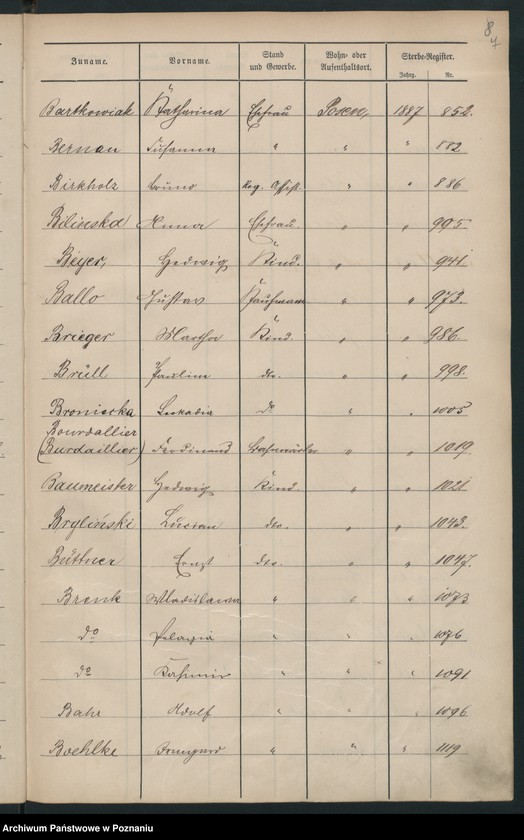 8
4
Zuname. Vorname. Stand und Gewerbe. Wohn- oder Aufenthaltsort. Sterbe-Register. Jahrg. Nr.
Bartkowiak Katharina Ehefrau Posen, 1887 852.
Bernau Susanna " " " 882
Birkholz Bruno Reg. Assist. " " 886
Bilinska Anna Ehefrau. " " 995
Beyer, Hedwig Kind. " " 941
Ballo Gustav Kaufmann " " 973.
Brieger Martha Kind. " " 986.
Brüll Paulina dto. " " 998.
Broniecka Leokadia do " " 1005
Bourdallier
(Burdaillier) Ferdinand " " 1019.
Baumeister Hedwig Kind. " " 1021
Bryliński Lucian dto. " " 1043.
Büttner Ernst dto. " " 1047.
Brenk Wladislawa " " " 1073
do Pelagia " " " 1076
do Kasimir " " " 1091
Bahr Adolf " " " 1096
Boehlke Irmgard " " " 1119
Archiwum Państwowe w Poznaniu